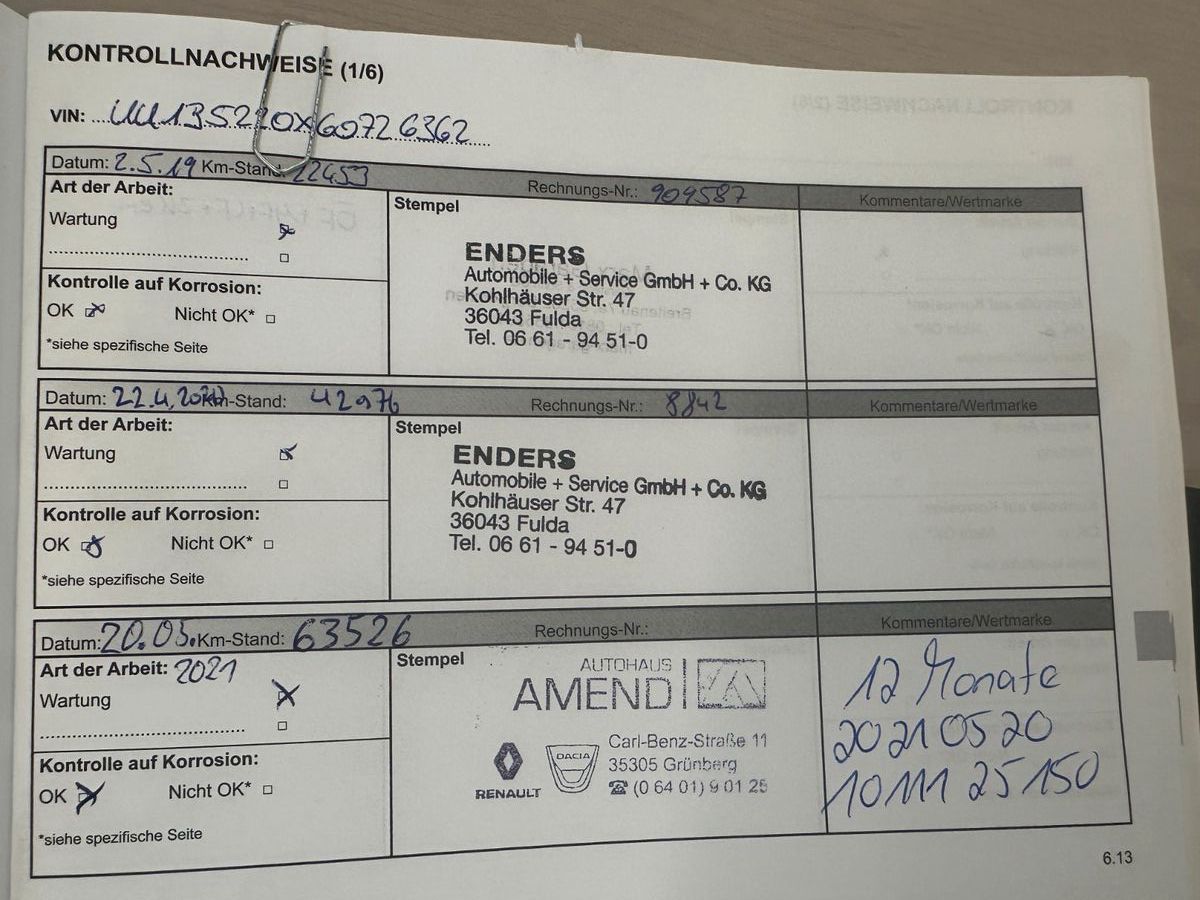 KONTROLLNACHWEISE (1/6)
VIN:
Datum: 2.5.19 Km-Stand: 22453 Rechnungs-Nr.: 909587 Kommentare/Wertmarke
Art der Arbeit:
Wartung
Stempel
ENDERS
Automobile + Service GmbH + Co. KG
Kohlhäuser Str. 47
36043 Fulda
Tel. 06 61 - 94 51-0
Kontrolle auf Korrosion:
OK Nicht OK*
*siehe spezifische Seite
Datum: 22.4.2020 Km-Stand: 42976 Rechnungs-Nr.: 8842 Kommentare/Wertmarke
Art der Arbeit:
Wartung
Stempel
ENDERS
Automobile + Service GmbH + Co. KG
Kohlhäuser Str. 47
36043 Fulda
Tel. 06 61 - 94 51-0
Kontrolle auf Korrosion:
OK Nicht OK*
*siehe spezifische Seite
Datum: 20.05. Km-Stand: 63526 Rechnungs-Nr.: Kommentare/Wertmarke
Art der Arbeit: 2021
Wartung
Stempel
AUTOHAUS
AMEND
RENAULT
DACIA
Carl-Benz-Straße 11
35305 Grünberg
☎ (0 64 01) 9 01 25
12 Monate
20210520
10111 25150
Kontrolle auf Korrosion:
OK Nicht OK*
*siehe spezifische Seite
6.13